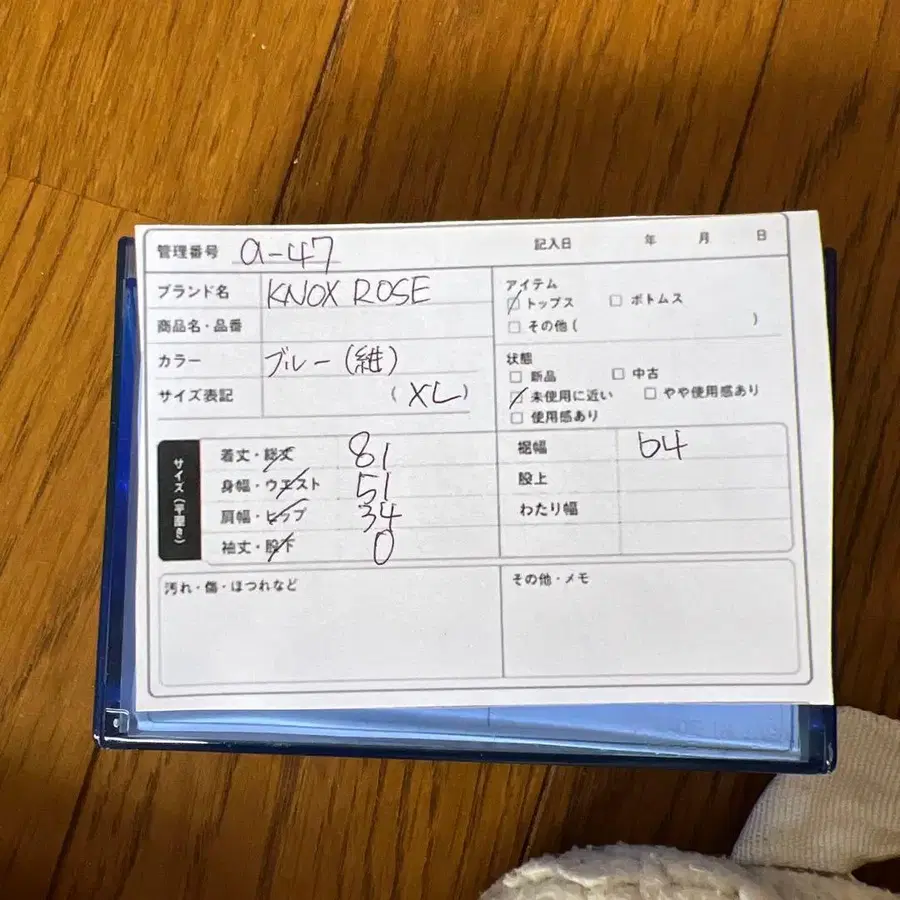 管理番号 a-47 記入日 年 月 日
ブランド名 KNOX ROSE
商品名・品番
カラー ブルー(紺)
サイズ表記 (XL)
アイテム
トップス □ ボトムス
□ その他 ( )
状態
□ 新品 □ 中古
未使用に近い □ やや使用感あり
□ 使用感あり
サイズ(平置き)
着丈・総丈 81
身幅・ウエスト 51
肩幅・ヒップ 34
袖丈・股下 0
裾幅 64
股上
わたり幅
汚れ・傷・ほつれなど
その他・メモ